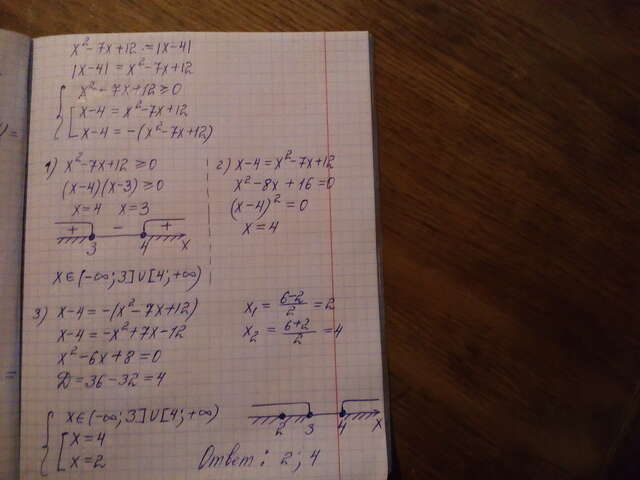 x²-7x+12=|x-4|
|x-4|=x²-7x+12
x²-7x+12≥0
x-4=x²-7x+12
x-4=-(x²-7x+12)
1) x²-7x+12≥0
(x-4)(x-3)≥0
x=4 x=3
+ - +
3 4 x
x∈(-∞;3]∪[4;+∞)
2) x-4=x²-7x+12
x²-8x+16=0
(x-4)²=0
x=4
3) x-4=-(x²-7x+12)
x-4=-x²+7x-12
x²-6x+8=0
D=36-32=4
x₁=(6-2)/2=2
x₂=(6+2)/2=4
x∈(-∞;3]∪[4;+∞)
x=4
x=2
2 3 4 x
Ответ: 2; 4